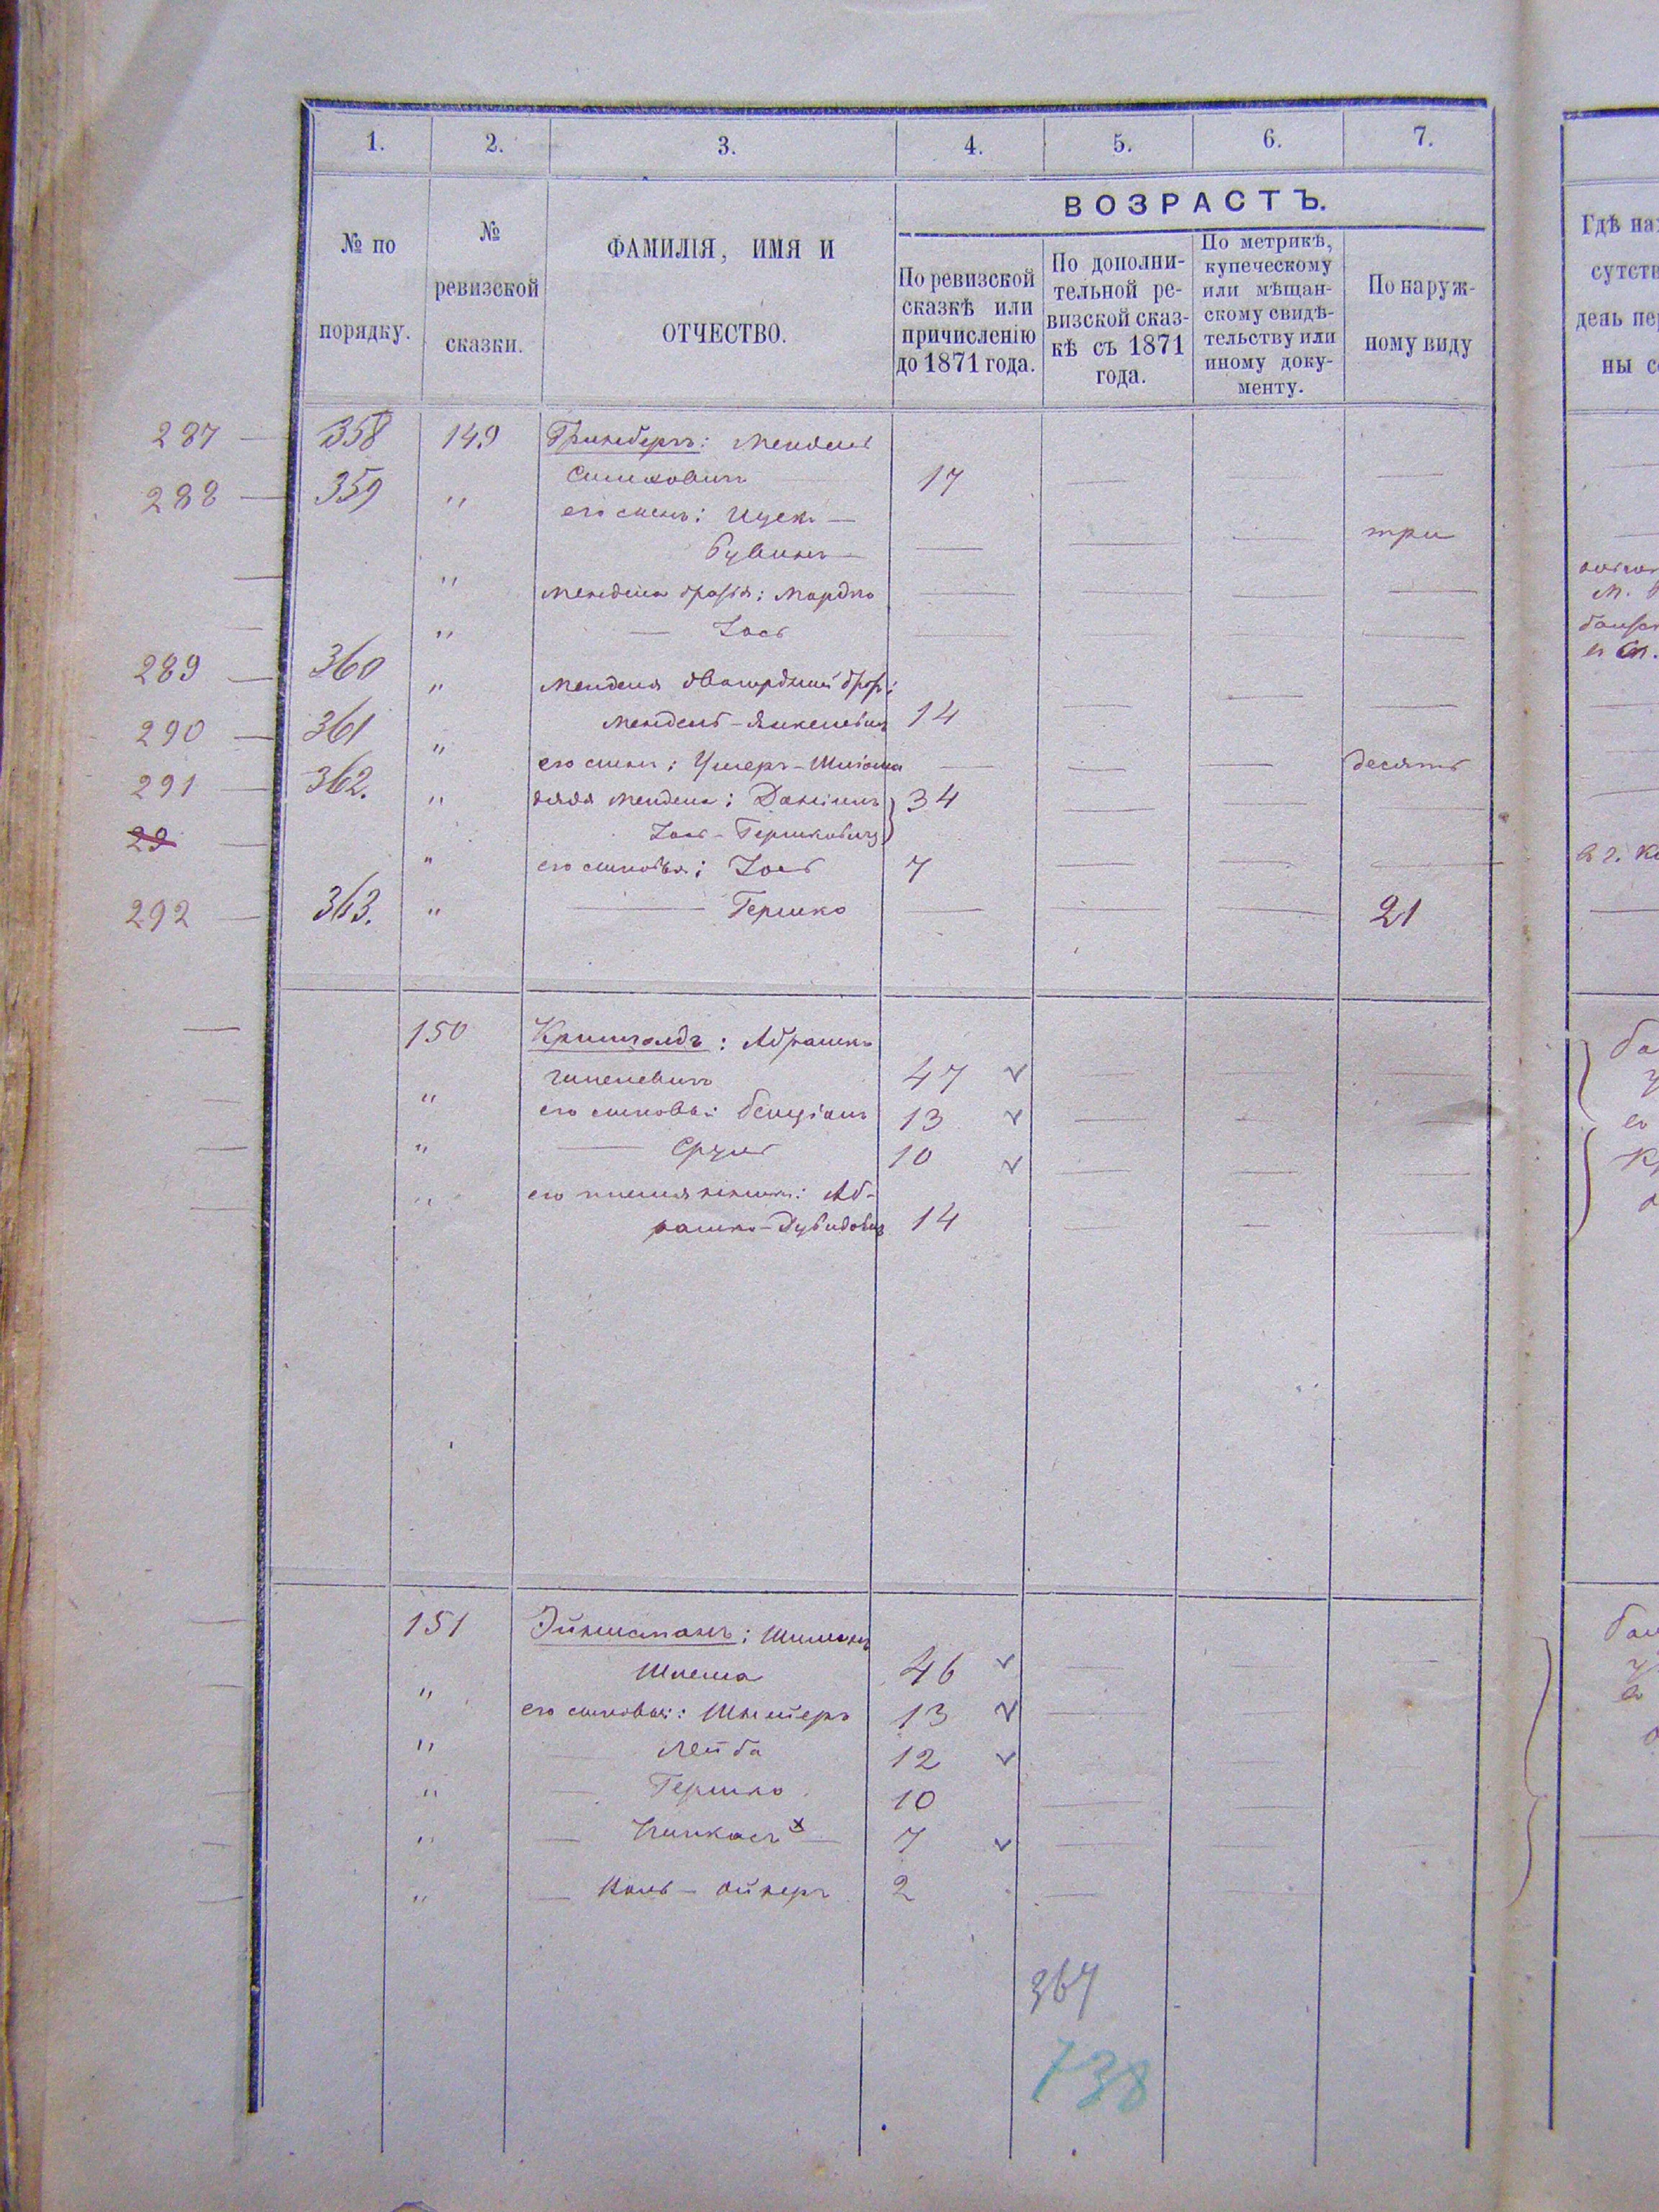 1. 2. 3. 4. 5. 6. 7.
№ по порядку.
№ ревизской сказки.
ФАМИЛІЯ, ИМЯ И ОТЧЕСТВО.
ВОЗРАСТЪ.
По ревизской сказкѣ или причисленію до 1871 года.
По дополнительной ревизской сказкѣ съ 1871 года.
По метрикѣ, купеческому или мѣщанскому свидѣтельству или иному документу.
По наружному виду
Гдѣ на
сутств
день пе
ны с
287 — 358 149 Гринбергъ: Мендель
17
288 — 359 " его сынъ: Ицекъ —
Бувинъ — — — — три
— " Менделя братья: Мордко — — — —
— " — Іось — — — —
289 — 360 " Менделя двоюродный брат:
Мендель-Янкелевичъ 14 — — —
290 — 361 " его сынъ: Ушеръ-Шліома — — — десять
291 — 362. " дядя Менделя: Даніилъ 34 — — —
Іось-Гершковичъ
29 — " его сыновья: Іось 7 — — —
292 — 363. " — Гершко — — — 21
— 150 Кришталъ: Абрашко
47 — — —
— " его сыновья: Бенціонъ 13 — — —
— " — Сруль 10 — — —
— " его племянникъ: Аб-
рашко-Дувидовичъ 14 — — —
— 151 Эйнштанъ: Шимонъ
Шлема 46 — — —
— " его сыновья: Шнейеръ 13 — —
— " — Лейба 12 — —
— " — Гершко 10 — —
— " — Пинкасъ — 7 — — —
— " — Кель-Ойзеръ 2 — —
367
738